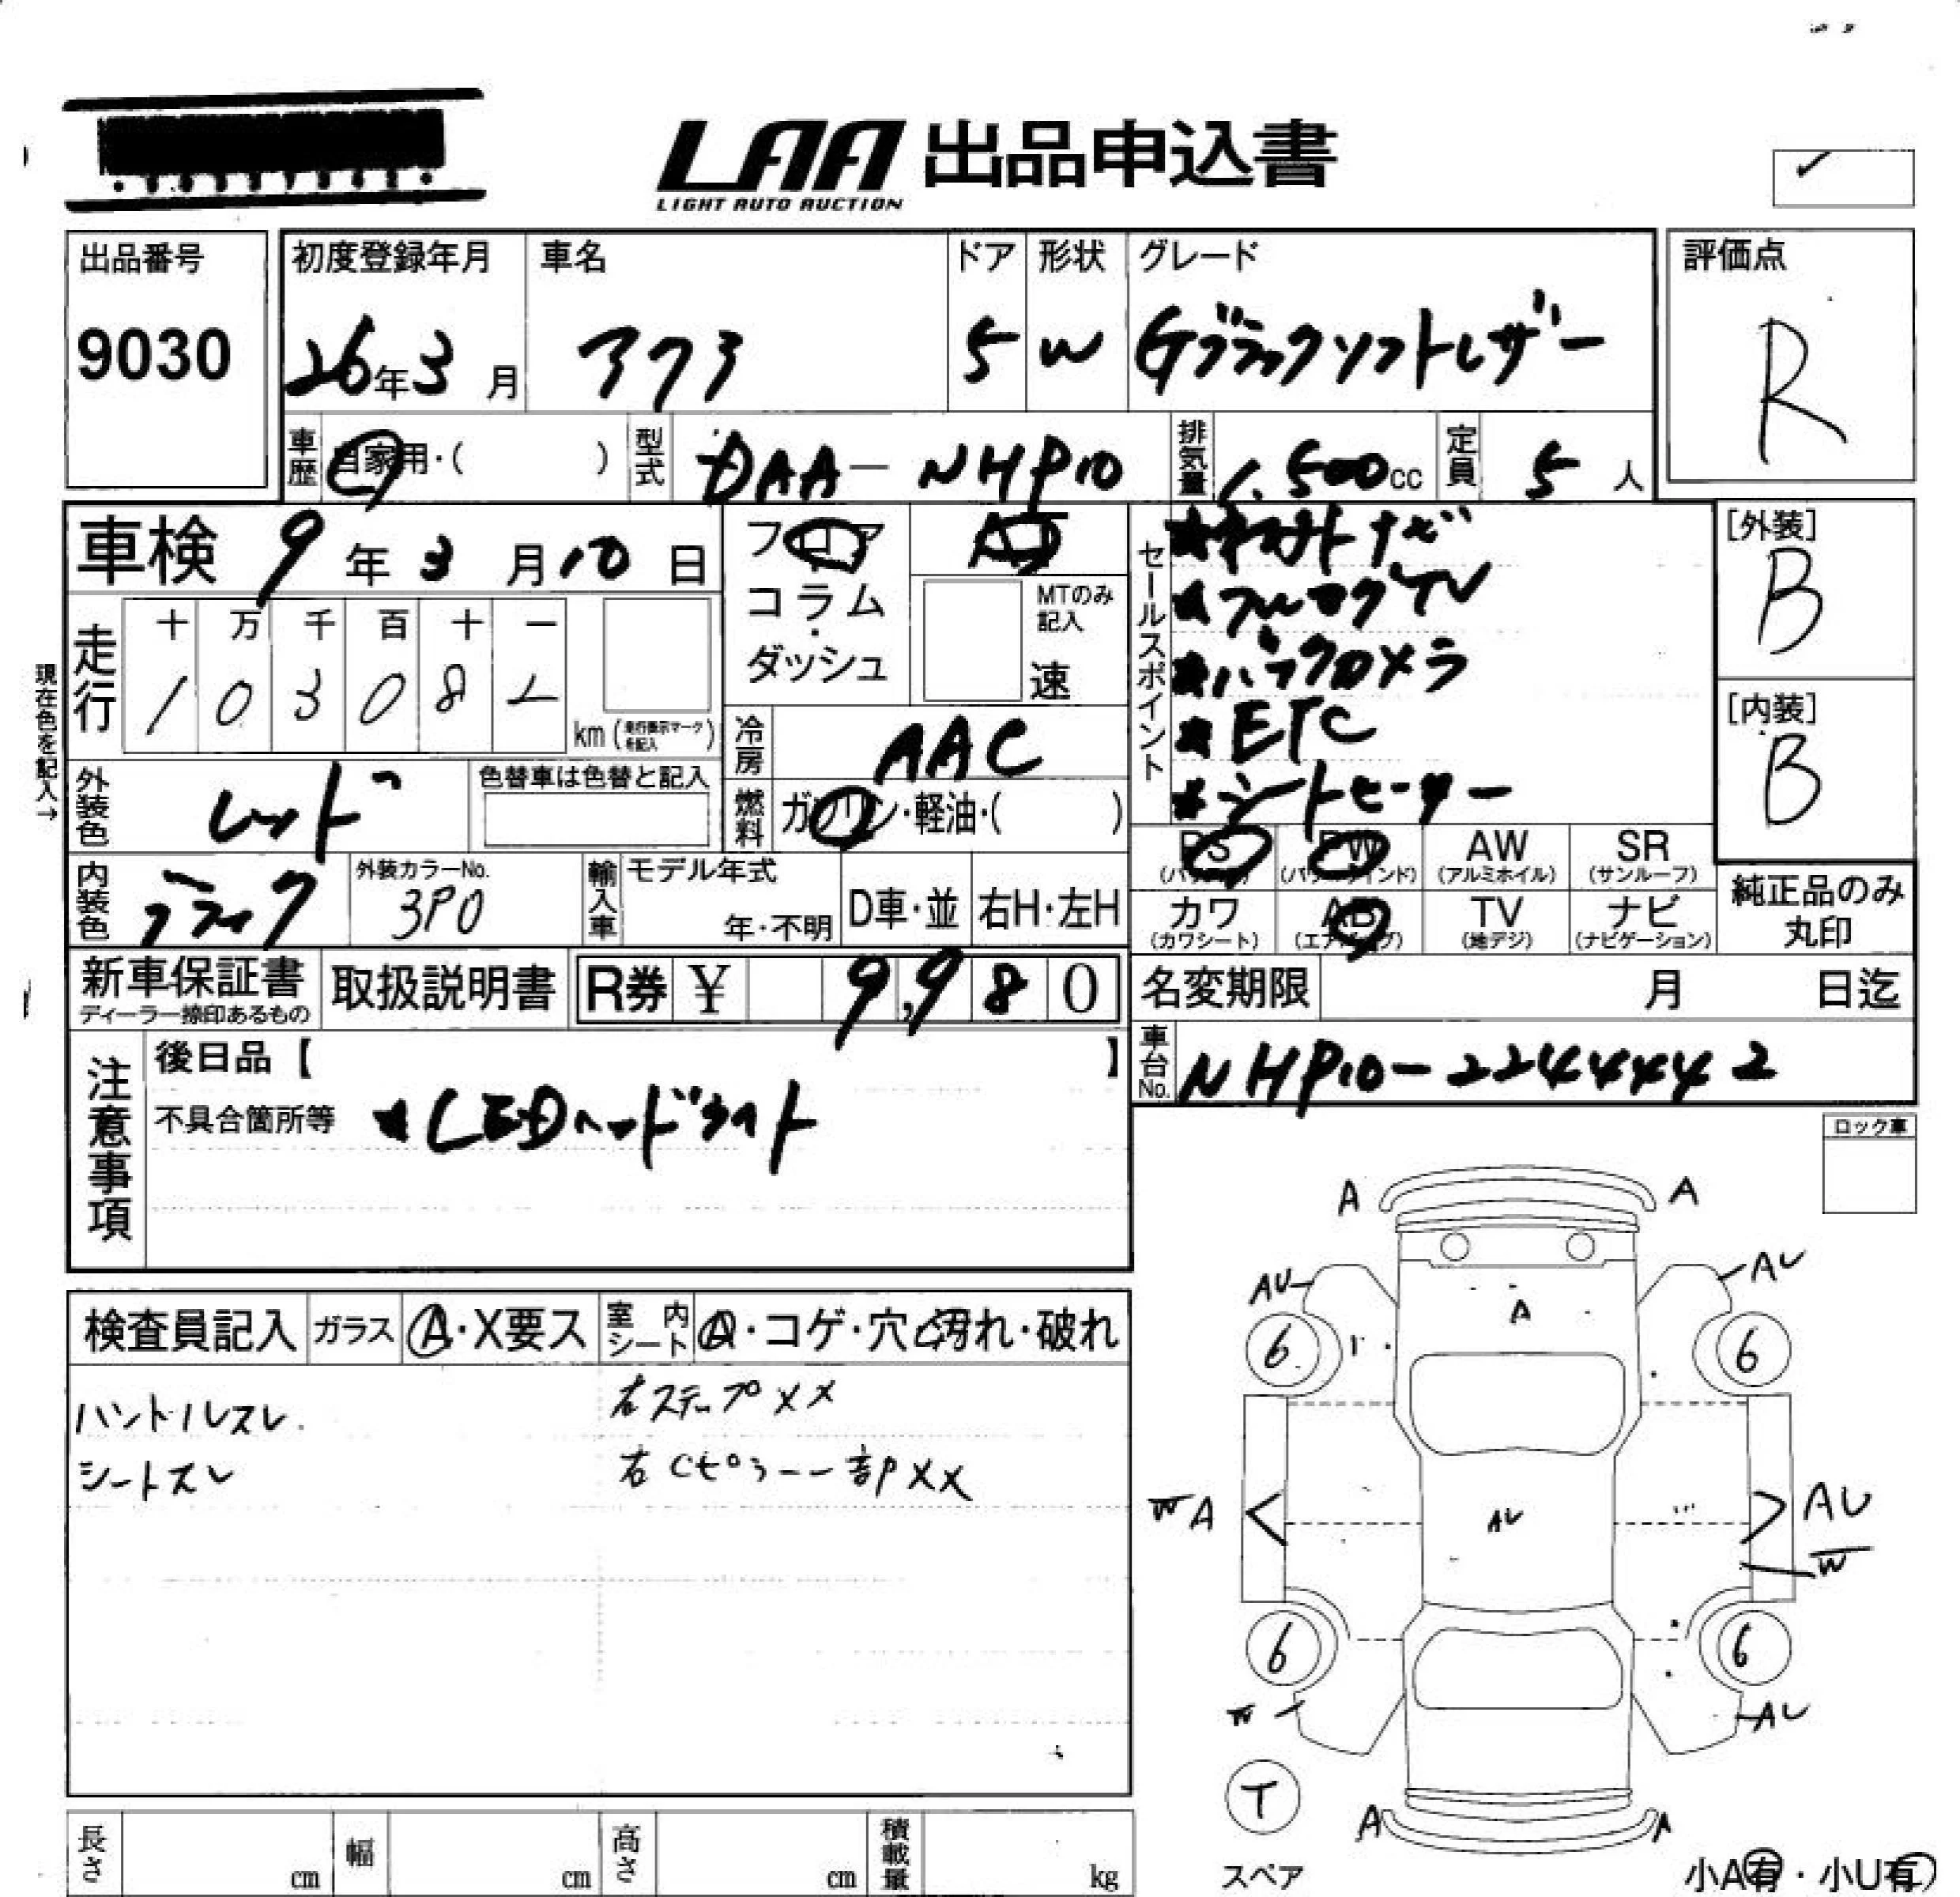 LAA 出品申込書
LIGHT AUTO AUCTION
出品番号
9030
初度登録年月
26年3月
車名
アクア
ドア
5
形状
W
グレード
Gブラックソフトレザー
評価点
R
車歴
自家用・( )
型式
DAA-NHP10
排気量
1,500cc
定員
5人
車検 9年3月10日
フロア
コラム
ダッシュ
AT
MTのみ記入
速
走行
十 万 千 百 十 一
1 0 3 0 8
km(走行表示マークを記入)
現在色を記入→
冷房
AAC
燃料
ガソリン・軽油・( )
外装色
レッド
色替車は色替と記入
内装色
ブラック
外装カラーNo.
3P0
輸入車
モデル年式
年・不明
D車・並
右H・左H
セールスポイント
★ナビ
★フルセグTV
★バックカメラ
★ETC
★シートヒーター
[外装]
B
[内装]
B
PS
PW
AW
(アルミホイル)
SR
(サンルーフ)
カワ
(カワシート)
AB
(エアバッグ)
TV
(地デジ)
ナビ
(ナビゲーション)
純正品のみ
丸印
新車保証書
ディーラー捺印あるもの
取扱説明書
R券 ¥ 9,980
名変期限 月 日迄
車台No.
NHP10-2244442
注意事項
後日品【 】
不具合箇所等 ★LEDヘッドライト
ロック車
検査員記入
ガラス
A・X要ス
室内シート
A・コゲ・穴・汚れ・破れ
ハンドルスレ
シートスレ
右ステップXX
右Cピラー一部XX
A A
AU AU
A
6 6
WA AU AU
W
6 6
W AU
T
スペア
A A
小A有・小U有
長さ cm
幅 cm
高さ cm
積載量 kg